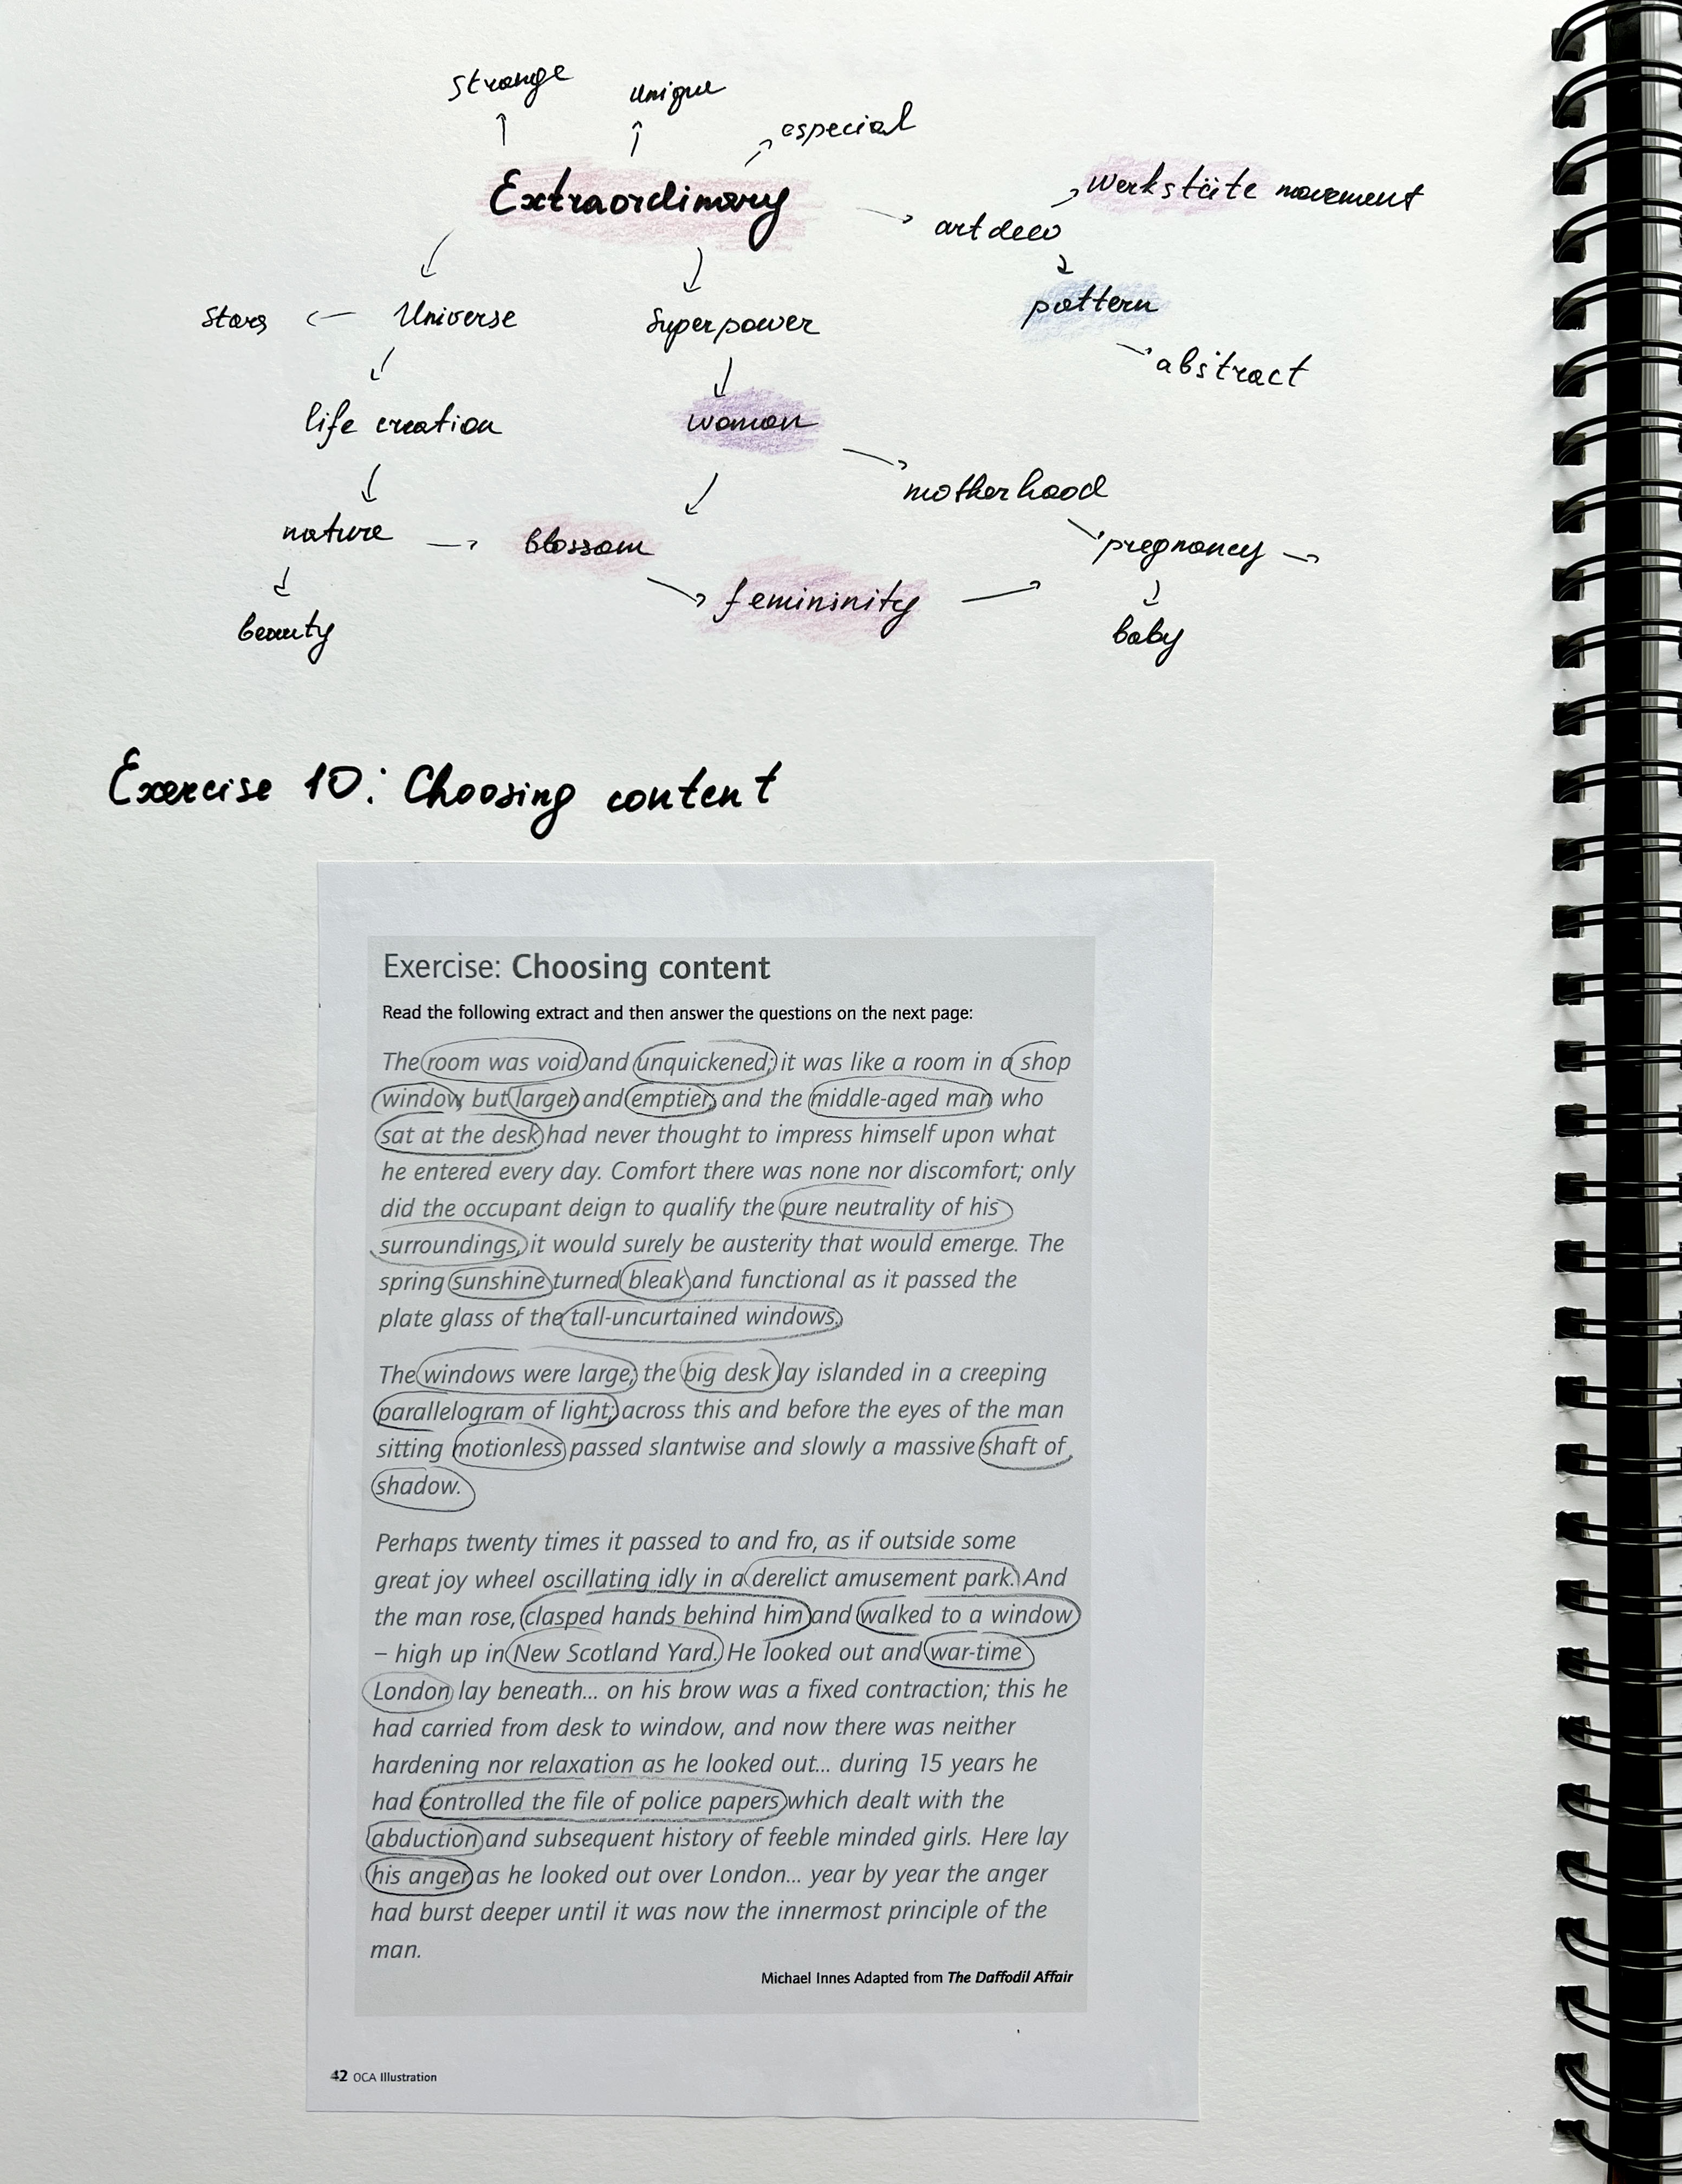 strange
unique
especial
Extraordinary
Werkstäte movement
art deco
pattern
abstract
Stars
Universe
Superpower
life creation
woman
motherhood
nature
blossom
pregnancy
femininity
beauty
baby
Exercise 10: Choosing content
Exercise: Choosing content
Read the following extract and then answer the questions on the next page:
The room was void and unquickened; it was like a room in a shop
window but larger and emptier; and the middle-aged man who
sat at the desk had never thought to impress himself upon what
he entered every day. Comfort there was none nor discomfort; only
did the occupant deign to qualify the pure neutrality of his
surroundings, it would surely be austerity that would emerge. The
spring sunshine turned bleak and functional as it passed the
plate glass of the tall-uncurtained windows.
The windows were large; the big desk lay islanded in a creeping
parallelogram of light; across this and before the eyes of the man
sitting motionless passed slantwise and slowly a massive shaft of
shadow.
Perhaps twenty times it passed to and fro, as if outside some
great joy wheel oscillating idly in a derelict amusement park. And
the man rose, clasped hands behind him and walked to a window
– high up in New Scotland Yard. He looked out and war-time
London lay beneath... on his brow was a fixed contraction; this he
had carried from desk to window, and now there was neither
hardening nor relaxation as he looked out... during 15 years he
had controlled the file of police papers which dealt with the
abduction and subsequent history of feeble minded girls. Here lay
his anger as he looked out over London... year by year the anger
had burst deeper until it was now the innermost principle of the
man.
Michael Innes Adapted from The Daffodil Affair
42 OCA Illustration